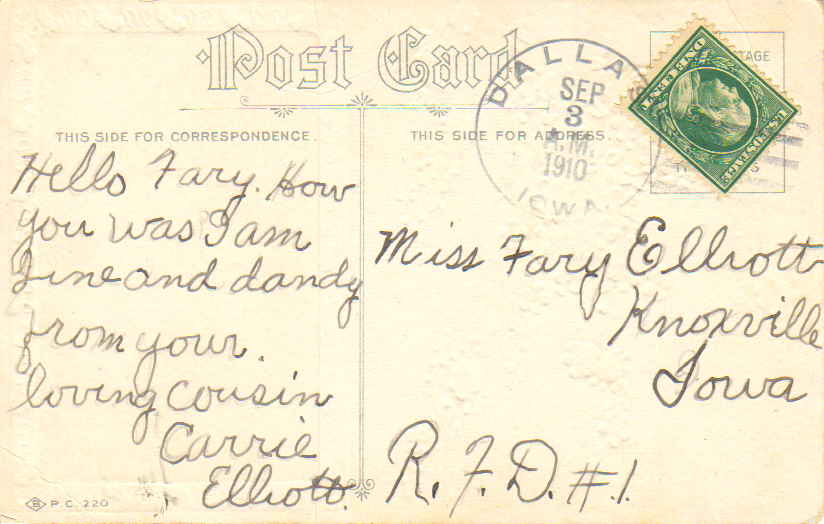 Post Card
DALLAS
SEP
3
A.M.
1910
IOWA
THIS SIDE FOR CORRESPONDENCE.
THIS SIDE FOR ADDRESS.
Hello Fary. How
you was I am
fine and dandy
from your
loving cousin
Carrie
Elliott.
Miss Fary Elliott
Knoxville
Iowa
R.F.D. #1.
B P.C. 220